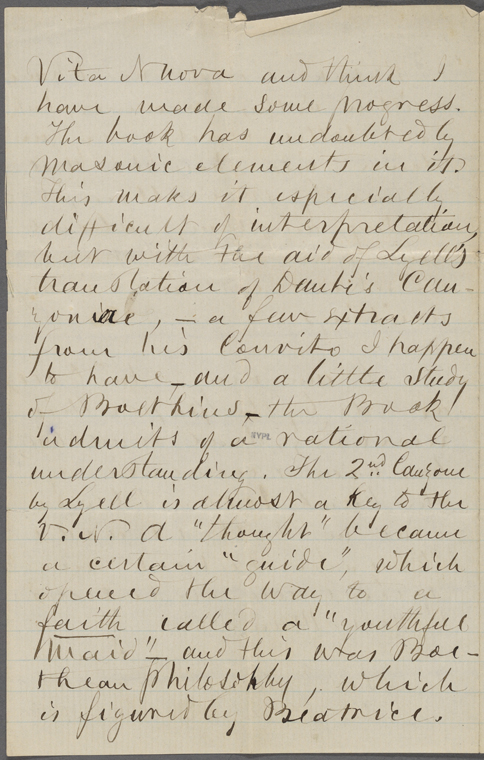 Vita Nuova and think I
have made some progress.
The book has undoubtedly
Masonic elements in it.
This makes it especially
difficult of interpretation,
but with the aid of Lyell's
translation of Dante's Can-
zoniae, — a few extracts
from his Convito I happen
to have — and a little study
of Boethius — the Book
admits of a rational
NYPL
understanding. The 2nd Canzone
by Lyell is almost a Key to the
V. N. A "thought" became
a certain "guide", which
opened the way to a
faith called a "youthful
Maid" — and this was Boe-
thean Philosophy, which
is figured by Beatrice.